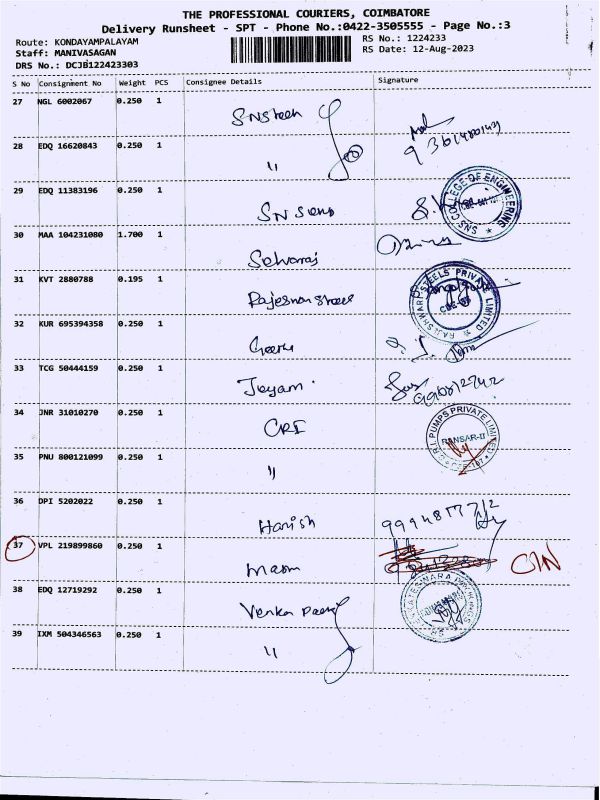 THE PROFESSIONAL COURIERS, COIMBATORE
Delivery Runsheet - SPT - Phone No.:0422-3505555 - Page No.:3
Route: KONDAYAMPALAYAM RS No.: 1224233
Staff: MANIVASAGAN RS Date: 12-Aug-2023
DRS No.: DCJB122423303
S No Consignment No Weight PCS Consignee Details Signature
27 NGL 6002067 0.250 1
28 EDQ 16620843 0.250 1 "
29 EDQ 11383196 0.250 1 SNS
SNS COLLEGE OF ENGINEERING
30 MAA 104231080 1.700 1 Selvaraj
31 KVT 2880788 0.195 1
RAJESHWARI STEELS PRIVATE LIMITED
32 KUR 695394358 0.250 1
33 TCG 50444159 0.250 1 Jeyam
34 JNR 31010270 0.250 1 CRI
PUMPS PRIVATE LIMITED
35 PNU 800121099 0.250 1 "
36 DPI 5202022 0.250 1 Harish
37 VPL 219899860 0.250 1
38 EDQ 12719292 0.250 1 Venka
39 IXM 504346563 0.250 1 "